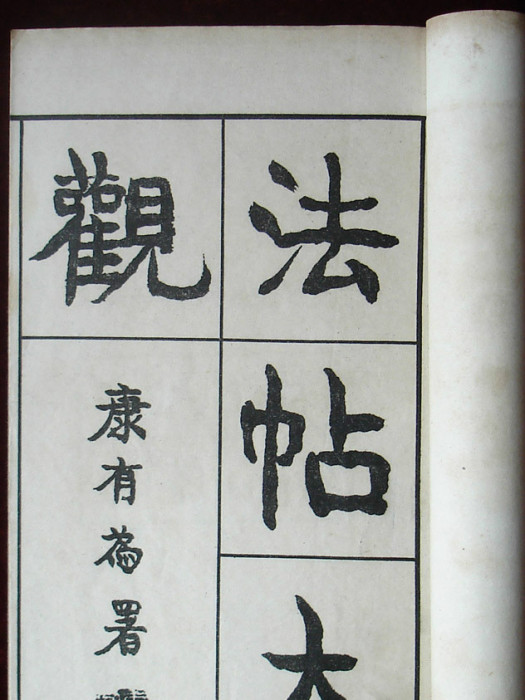 法帖大
觀
康有為署